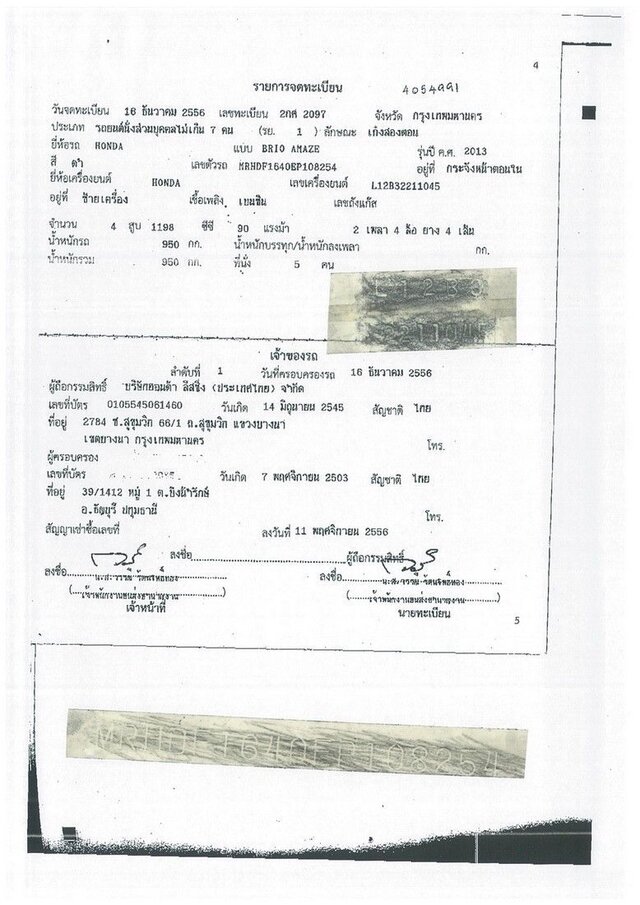 4
รายการจดทะเบียน 4054991
วันจดทะเบียน 16 ธันวาคม 2556 เลขทะเบียน 2กศ 2097 จังหวัด กรุงเทพมหานคร
ประเภท รถยนต์นั่งส่วนบุคคลไม่เกิน 7 คน (รย. 1 ) ลักษณะ เก๋งสองตอน
ยี่ห้อรถ HONDA แบบ BRIO AMAZE รุ่นปี ค.ศ. 2013
สี ดำ เลขตัวรถ MRHDF1640EP108254 อยู่ที่ กระจังหน้าตอนใน
ยี่ห้อเครื่องยนต์ HONDA เลขเครื่องยนต์ L12B32211045
อยู่ที่ ซ้ายเครื่อง เชื้อเพลิง เบนซิน เลขถังแก๊ส
จำนวน 4 สูบ 1198 ซีซี 90 แรงม้า 2 เพลา 4 ล้อ ยาง 4 เส้น
น้ำหนักรถ 950 กก. น้ำหนักบรรทุก/น้ำหนักลงเพลา กก.
น้ำหนักรวม 950 กก. ที่นั่ง 5 คน
เจ้าของรถ
ลำดับที่ 1 วันที่ครอบครองรถ 16 ธันวาคม 2556
ผู้ถือกรรมสิทธิ์ บริษัทฮอนด้า ลีสซิ่ง (ประเทศไทย) จำกัด
เลขที่บัตร 0105545061460 วันเกิด 14 มิถุนายน 2545 สัญชาติ ไทย
ที่อยู่ 2784 ซ.สุขุมวิท 66/1 ถ.สุขุมวิท แขวงบางนา
เขตบางนา กรุงเทพมหานคร โทร.
ผู้ครอบครอง
เลขที่บัตร วันเกิด 7 พฤศจิกายน 2503 สัญชาติ ไทย
ที่อยู่ 39/1412 หมู่ 1 ต.บึงน้ำรักษ์
อ.ธัญบุรี ปทุมธานี โทร.
สัญญาเช่าซื้อเลขที่ ลงวันที่ 11 พฤศจิกายน 2556
ลงชื่อ ผู้ถือกรรมสิทธิ์
ลงชื่อ ลงชื่อ
(เจ้าพนักงานขนส่งชำนาญงาน) (เจ้าพนักงานขนส่งชำนาญงาน)
เจ้าหน้าที่ นายทะเบียน
5
MRHDF1640EP108254